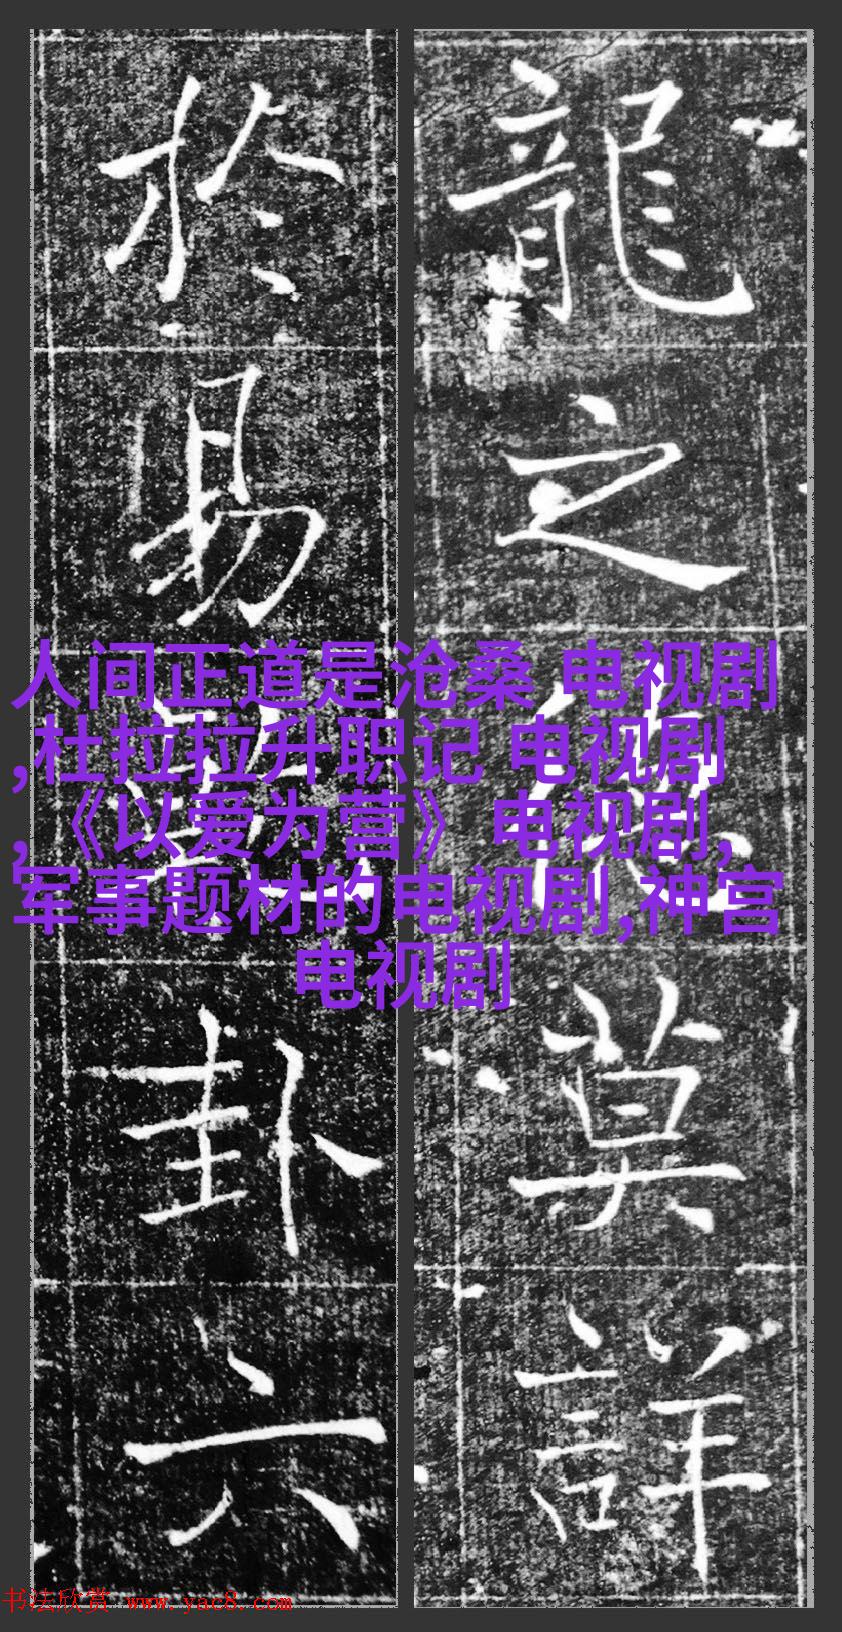 龍之
莫詳
於易
卦六
人间正道是沧桑 电视剧
,杜拉拉升职记 电视剧
,《以爱为营》 电视剧,
军事题材的电视剧,神宫
电视剧
书法欣赏 www.yac8.com